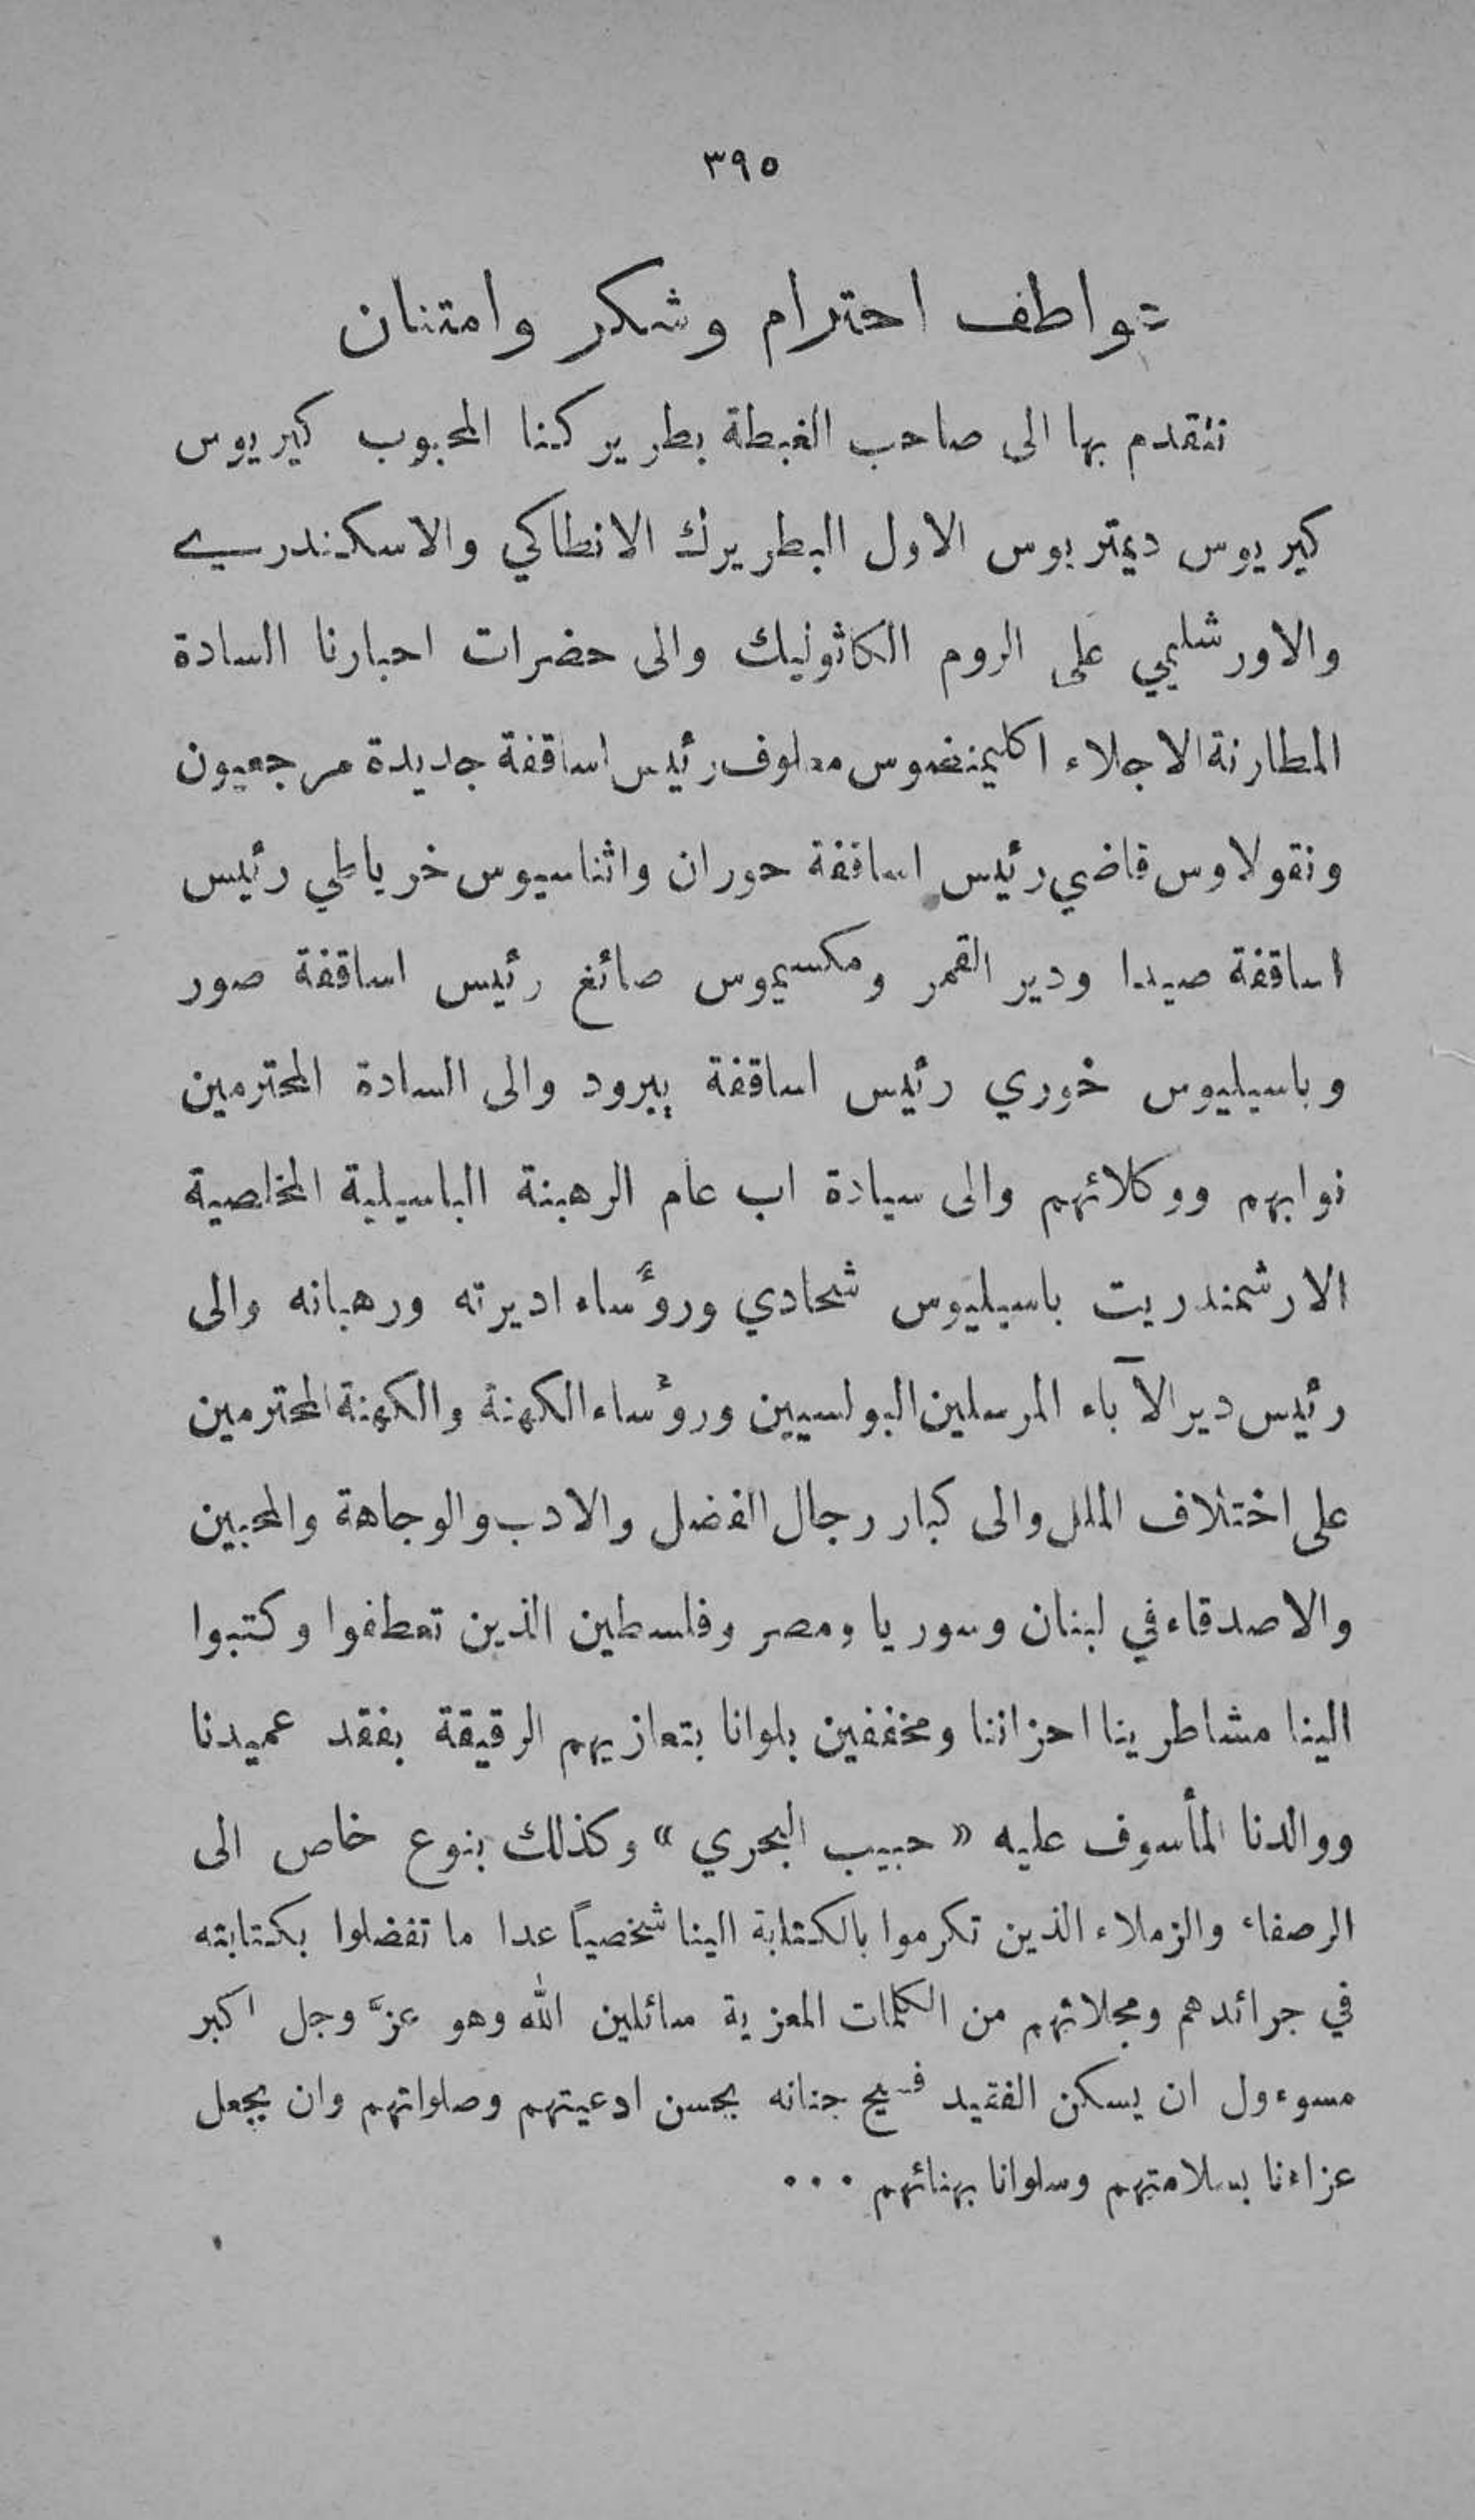 ٣٩٥
عواطف احترام وشكر وامتنان
نتقدم بها الى صاحب الغبطة بطريركنا المحبوب كيريوس
كيريوس ديمتريوس الاول البطريرك الانطاكي والاسكندري
والاورشليمي على الروم الكاثوليك والى حضرات احبارنا السادة
المطارنة الاجلاء اكليمنضوس معلوف رئيس اساقفة جديدة مرجعيون
ونقولاوس قاضي رئيس اساقفة حوران واثناسيوس خرياطي رئيس
اساقفة صيدا ودير القمر ومكسيموس صائغ رئيس اساقفة صور
وباسيليوس خوري رئيس اساقفة يبرود والى السادة المحترمين
نوابهم ووكلائهم والى سيادة اب عام الرهبنة الباسيلية المخلصية
الارشمندريت باسيليوس شحادي ورؤساء اديرته ورهبانه والى
رئيس دير الآباء المرسلين البولسيين ورؤساء الكهنة والكهنة المحترمين
على اختلاف الملل والى كبار رجال الفضل والادب والوجاهة والمحبين
والاصدقاء في لبنان وسوريا ومصر وفلسطين الذين تعطفوا وكتبوا
الينا مشاطرينا احزاننا ومخففين بلوانا بتعازيهم الرقيقة بفقد عميدنا
ووالدنا المأسوف عليه « حبيب البحري » وكذلك بنوع خاص الى
الرصفاء والزملاء الذين تكرموا بالكتابة الينا شخصياً عدا ما تفضلوا بكتابته
في جرائدهم ومجلاتهم من الكلمات المعزية سائلين الله وهو عزَّ وجل اكبر
مسوءول ان يسكن الفقيد فسيح جنانه بحسن ادعيتهم وصلواتهم وان يجعل
عزاءنا بسلامتهم وسلوانا بهنائهم ...